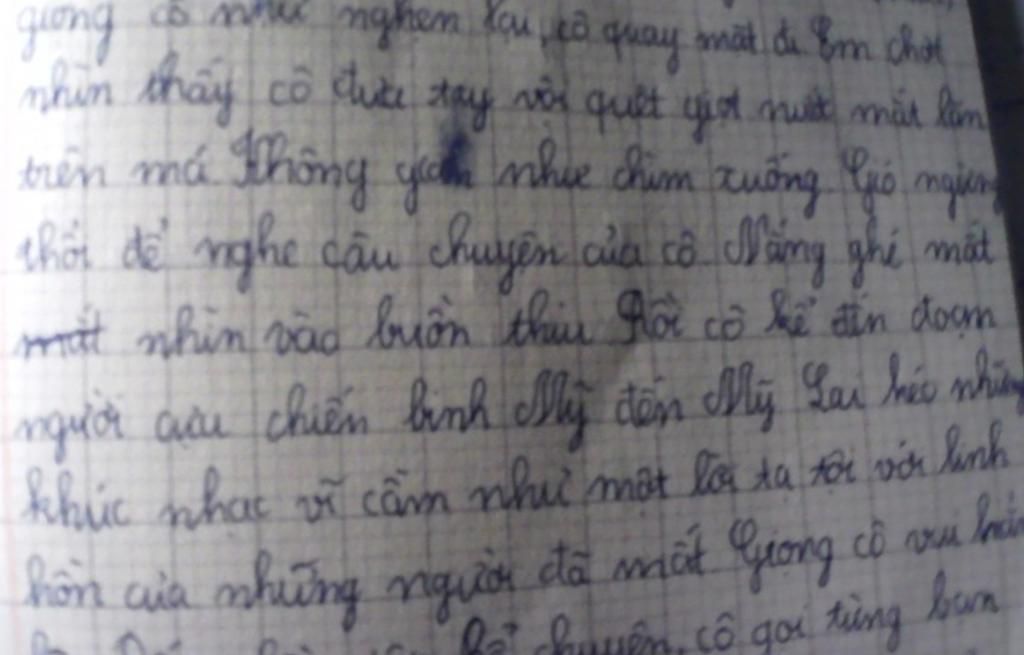 giọng cô như nghẹn lại, cô quay mặt đi Em chợt
nhìn thấy cô đưa tay vội quệt giọt nước mắt lăn
trên má Không gian như chìm xuống Gió ngừng
thổi để nghe câu chuyện của cô Nắng ghé mắt
nhìn vào buồn thiu Rồi cô kể đến đoạn
người cựu chiến binh Mỹ đến Mỹ Lai kéo những
khúc nhạc vĩ cầm như một lời tạ tội với linh
hồn của những người đã mất Giọng cô vui hẳn
kể chuyện, cô gọi từng bạn